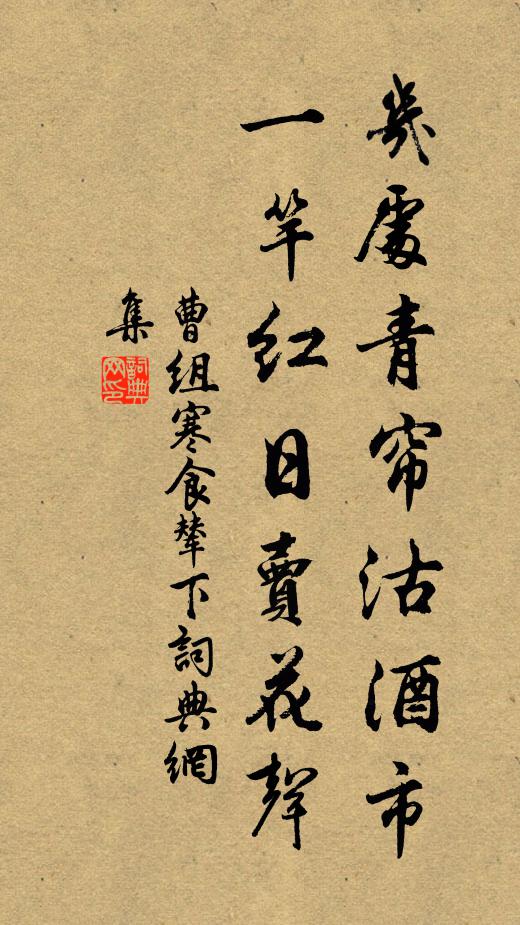 幾處青帘沽酒市
一竿紅日賣花聲
曹組寒食輦下詞典網
集
詞典网印